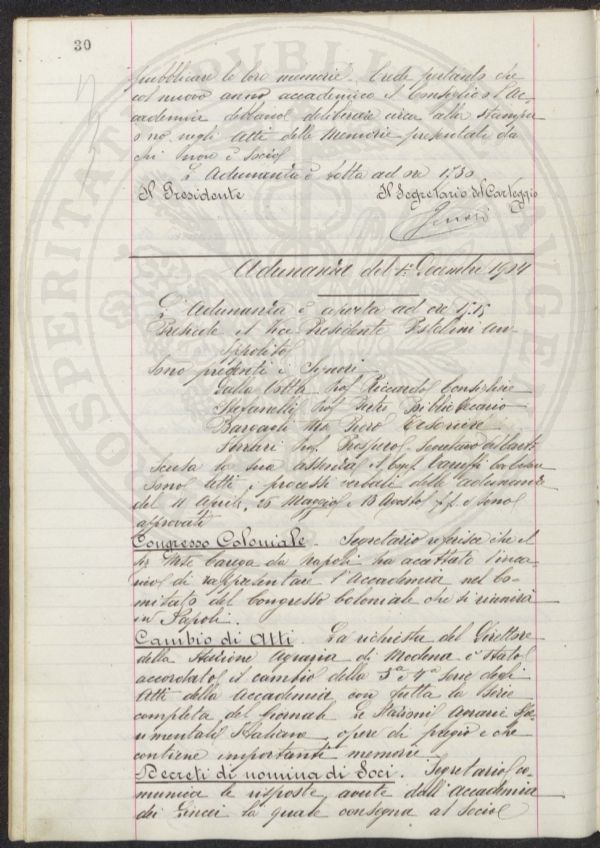 30
pubblicare le loro memorie. Crede pertanto che
col nuovo anno accademico il Consiglio e l'Ac-
cademia debbano deliberare circa alla stampa
o no negli Atti delle Memorie presentate da
chi non è Socio
L'Adunanza è tolta ad ore 17.30
Il Presidente Il Segretario del Carteggio
Adunanza del 1º Decembre 1904
L'Adunanza è aperta ad ore 17.15
Presiede il Vice Presidente Pestellini
Ippolito
Sono presenti i Signori
Dalla Volta Prof. Riccardo Consigliere
Stefanelli Prof. Pietro Bibliotecario
Barsanti Piero Tesoriere
Ferrari Prof. Prospero Segretario del Cart.
Scusa la sua assenza il Cons.
Sono letti i processi verbali delle adunanze
del 11 Aprile, 25 Maggio e 13 Agosto p.p. e sono
approvati
Congresso Coloniale. Segretario riferisce che il
Sr. Mse Carega da Napoli ha accettato l'inca-
rico di rappresentare l'Accademia nel Co-
mitato del Congresso Coloniale che si riunirà
in Napoli.
Cambio di Atti. La richiesta del Direttore
della Stazione Agraria di Modena è stato
accordato il cambio della 3ª e 4ª Serie degli
Atti della Accademia con tutta la Serie
completa del Giornale Le Stazioni Agrarie Spe-
rimentali Italiane, opera di pregio e che
contiene importanti memorie.
Decreti di nomina di Soci. Segretario co-
munica le risposte avute dall'Accademia
dei Lincei la quale consegna al Socio